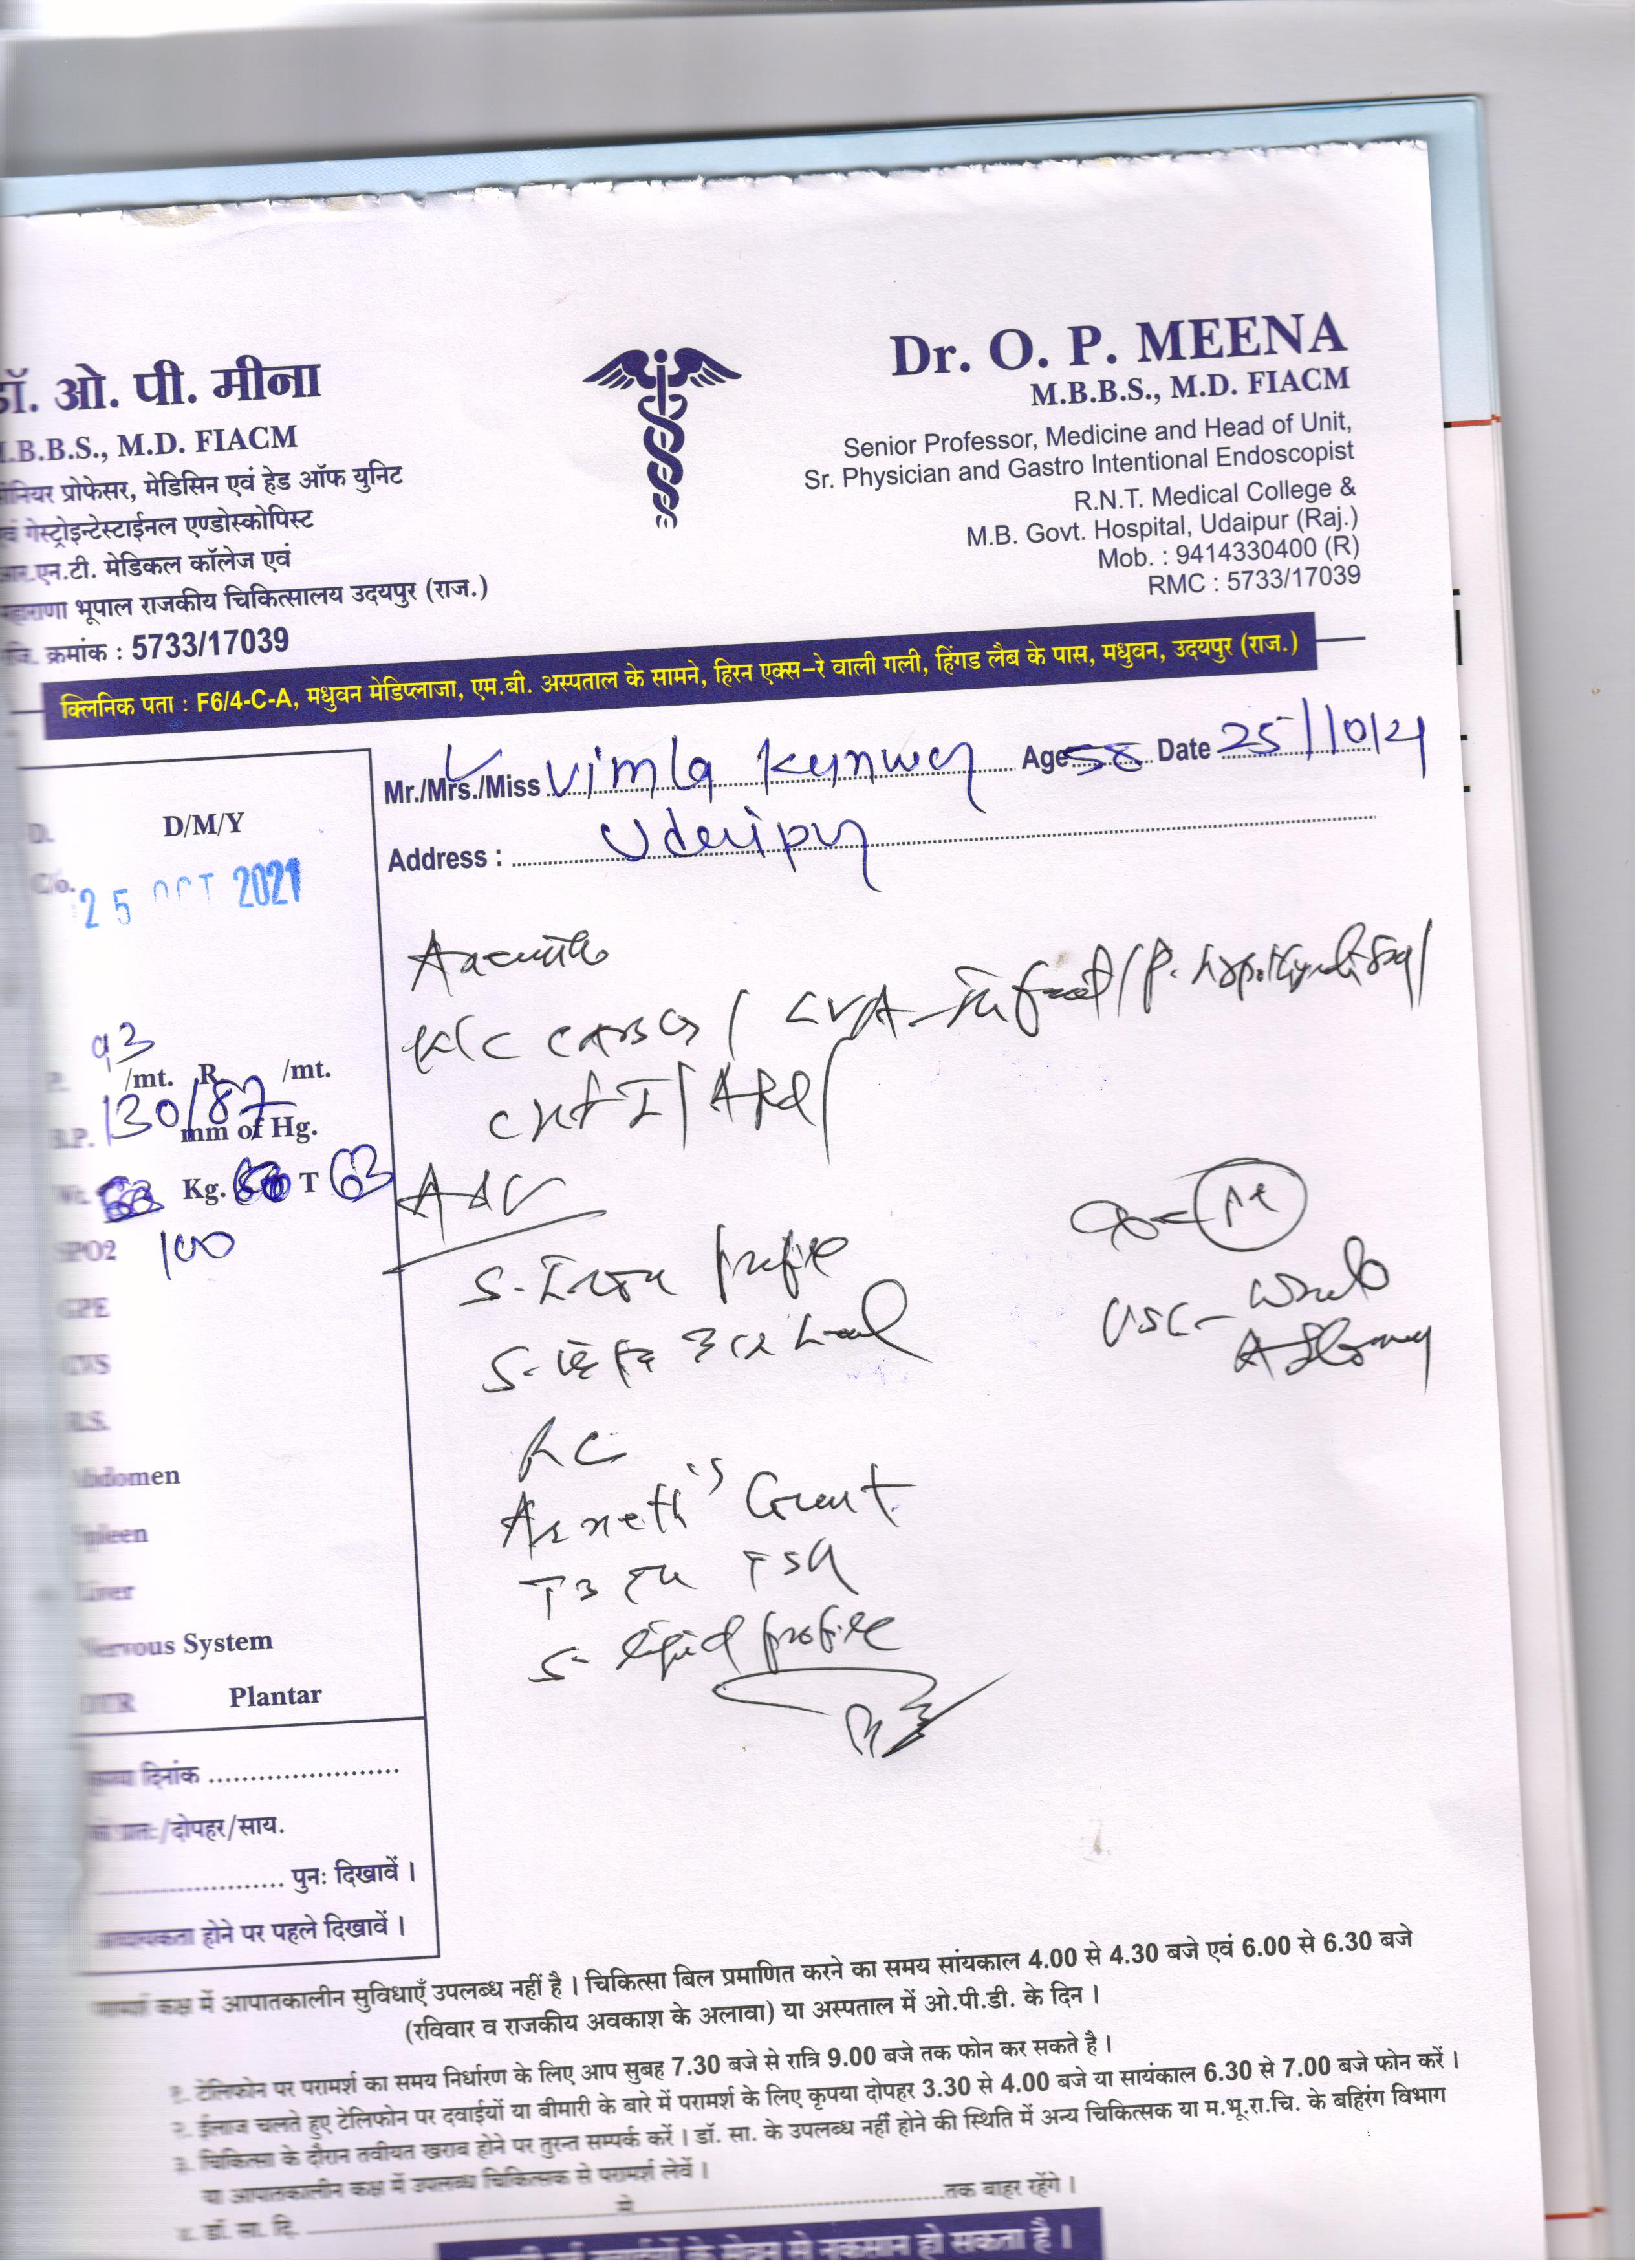 डॉ. ओ. पी. मीना
M.B.B.S., M.D. FIACM
सीनियर प्रोफेसर, मेडिसिन एवं हेड ऑफ युनिट
एवं गेस्ट्रोइन्टेस्टाईनल एण्डोस्कोपिस्ट
आर.एन.टी. मेडिकल कॉलेज एवं
महाराणा भूपाल राजकीय चिकित्सालय उदयपुर (राज.)
रजि. क्रमांक : 5733/17039
Dr. O. P. MEENA
M.B.B.S., M.D. FIACM
Senior Professor, Medicine and Head of Unit,
Sr. Physician and Gastro Intentional Endoscopist
R.N.T. Medical College &
M.B. Govt. Hospital, Udaipur (Raj.)
Mob. : 9414330400 (R)
RMC : 5733/17039
क्लिनिक पता : F6/4-C-A, मधुवन मेडिप्लाजा, एम.बी. अस्पताल के सामने, हिरन एक्स-रे वाली गली, हिंगड लैब के पास, मधुवन, उदयपुर (राज.)
Mr./Mrs./Miss Vimla Kunwer Age 58 Date 25/10/21
Address : Udaipur
D. D/M/Y
C/o.
25 OCT 2021
P. 93 /mt. R. /mt.
B.P. 130/87 mm of Hg.
Wt. Kg. T 63
SPO2 100
GPE
CVS
R.S.
Abdomen
Spleen
Liver
Nervous System
DTR Plantar
कृपया दिनांक
प्रातः/दोपहर/साय.
पुनः दिखावें ।
आवश्यकता होने पर पहले दिखावें ।
CABG / CVA
ADV
S. Iron Profile
S-
Arneth's Count
T3 T4 TSH
S- lipid profile
परामर्श कक्ष में आपातकालीन सुविधाएँ उपलब्ध नहीं है । चिकित्सा बिल प्रमाणित करने का समय सांयकाल 4.00 से 4.30 बजे एवं 6.00 से 6.30 बजे
(रविवार व राजकीय अवकाश के अलावा) या अस्पताल में ओ.पी.डी. के दिन ।
१. टेलिफोन पर परामर्श का समय निर्धारण के लिए आप सुबह 7.30 बजे से रात्रि 9.00 बजे तक फोन कर सकते है ।
२. ईलाज चलते हुए टेलिफोन पर दवाईयों या बीमारी के बारे में परामर्श के लिए कृपया दोपहर 3.30 से 4.00 बजे या सायंकाल 6.30 से 7.00 बजे फोन करें ।
३. चिकित्सा के दौरान तवीयत खराब होने पर तुरन्त सम्पर्क करें । डॉ. सा. के उपलब्ध नहीं होने की स्थिति में अन्य चिकित्सक या म.भू.रा.चि. के बहिरंग विभाग
या आपातकालीन कक्ष में उपलब्ध चिकित्सक से परामर्श लेवें ।
४. डॉ. सा. दि. से तक बाहर रहेंगे ।
के सेवन से नुकसान हो सकता है ।